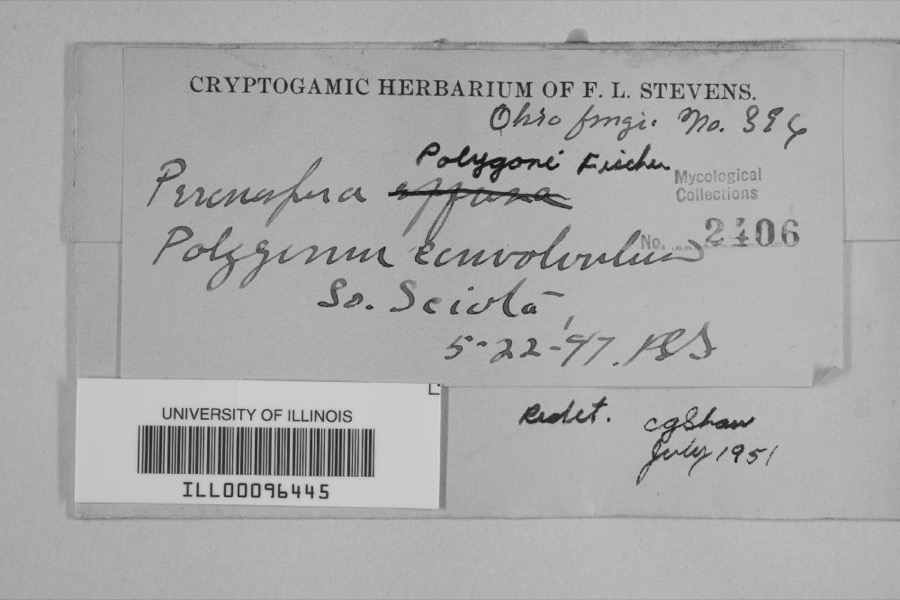 CRYPTOGAMIC HERBARIUM OF F. L. STEVENS.
Ohio fungi. No.
Polygoni Fischer
Peronospora effusa
Mycological
Collections
No. 2406
Polygonum convolvulus
So. Sciota,
5-22-'97.
UNIVERSITY OF ILLINOIS
ILL00096445
Redet. CGShaw
July 1951